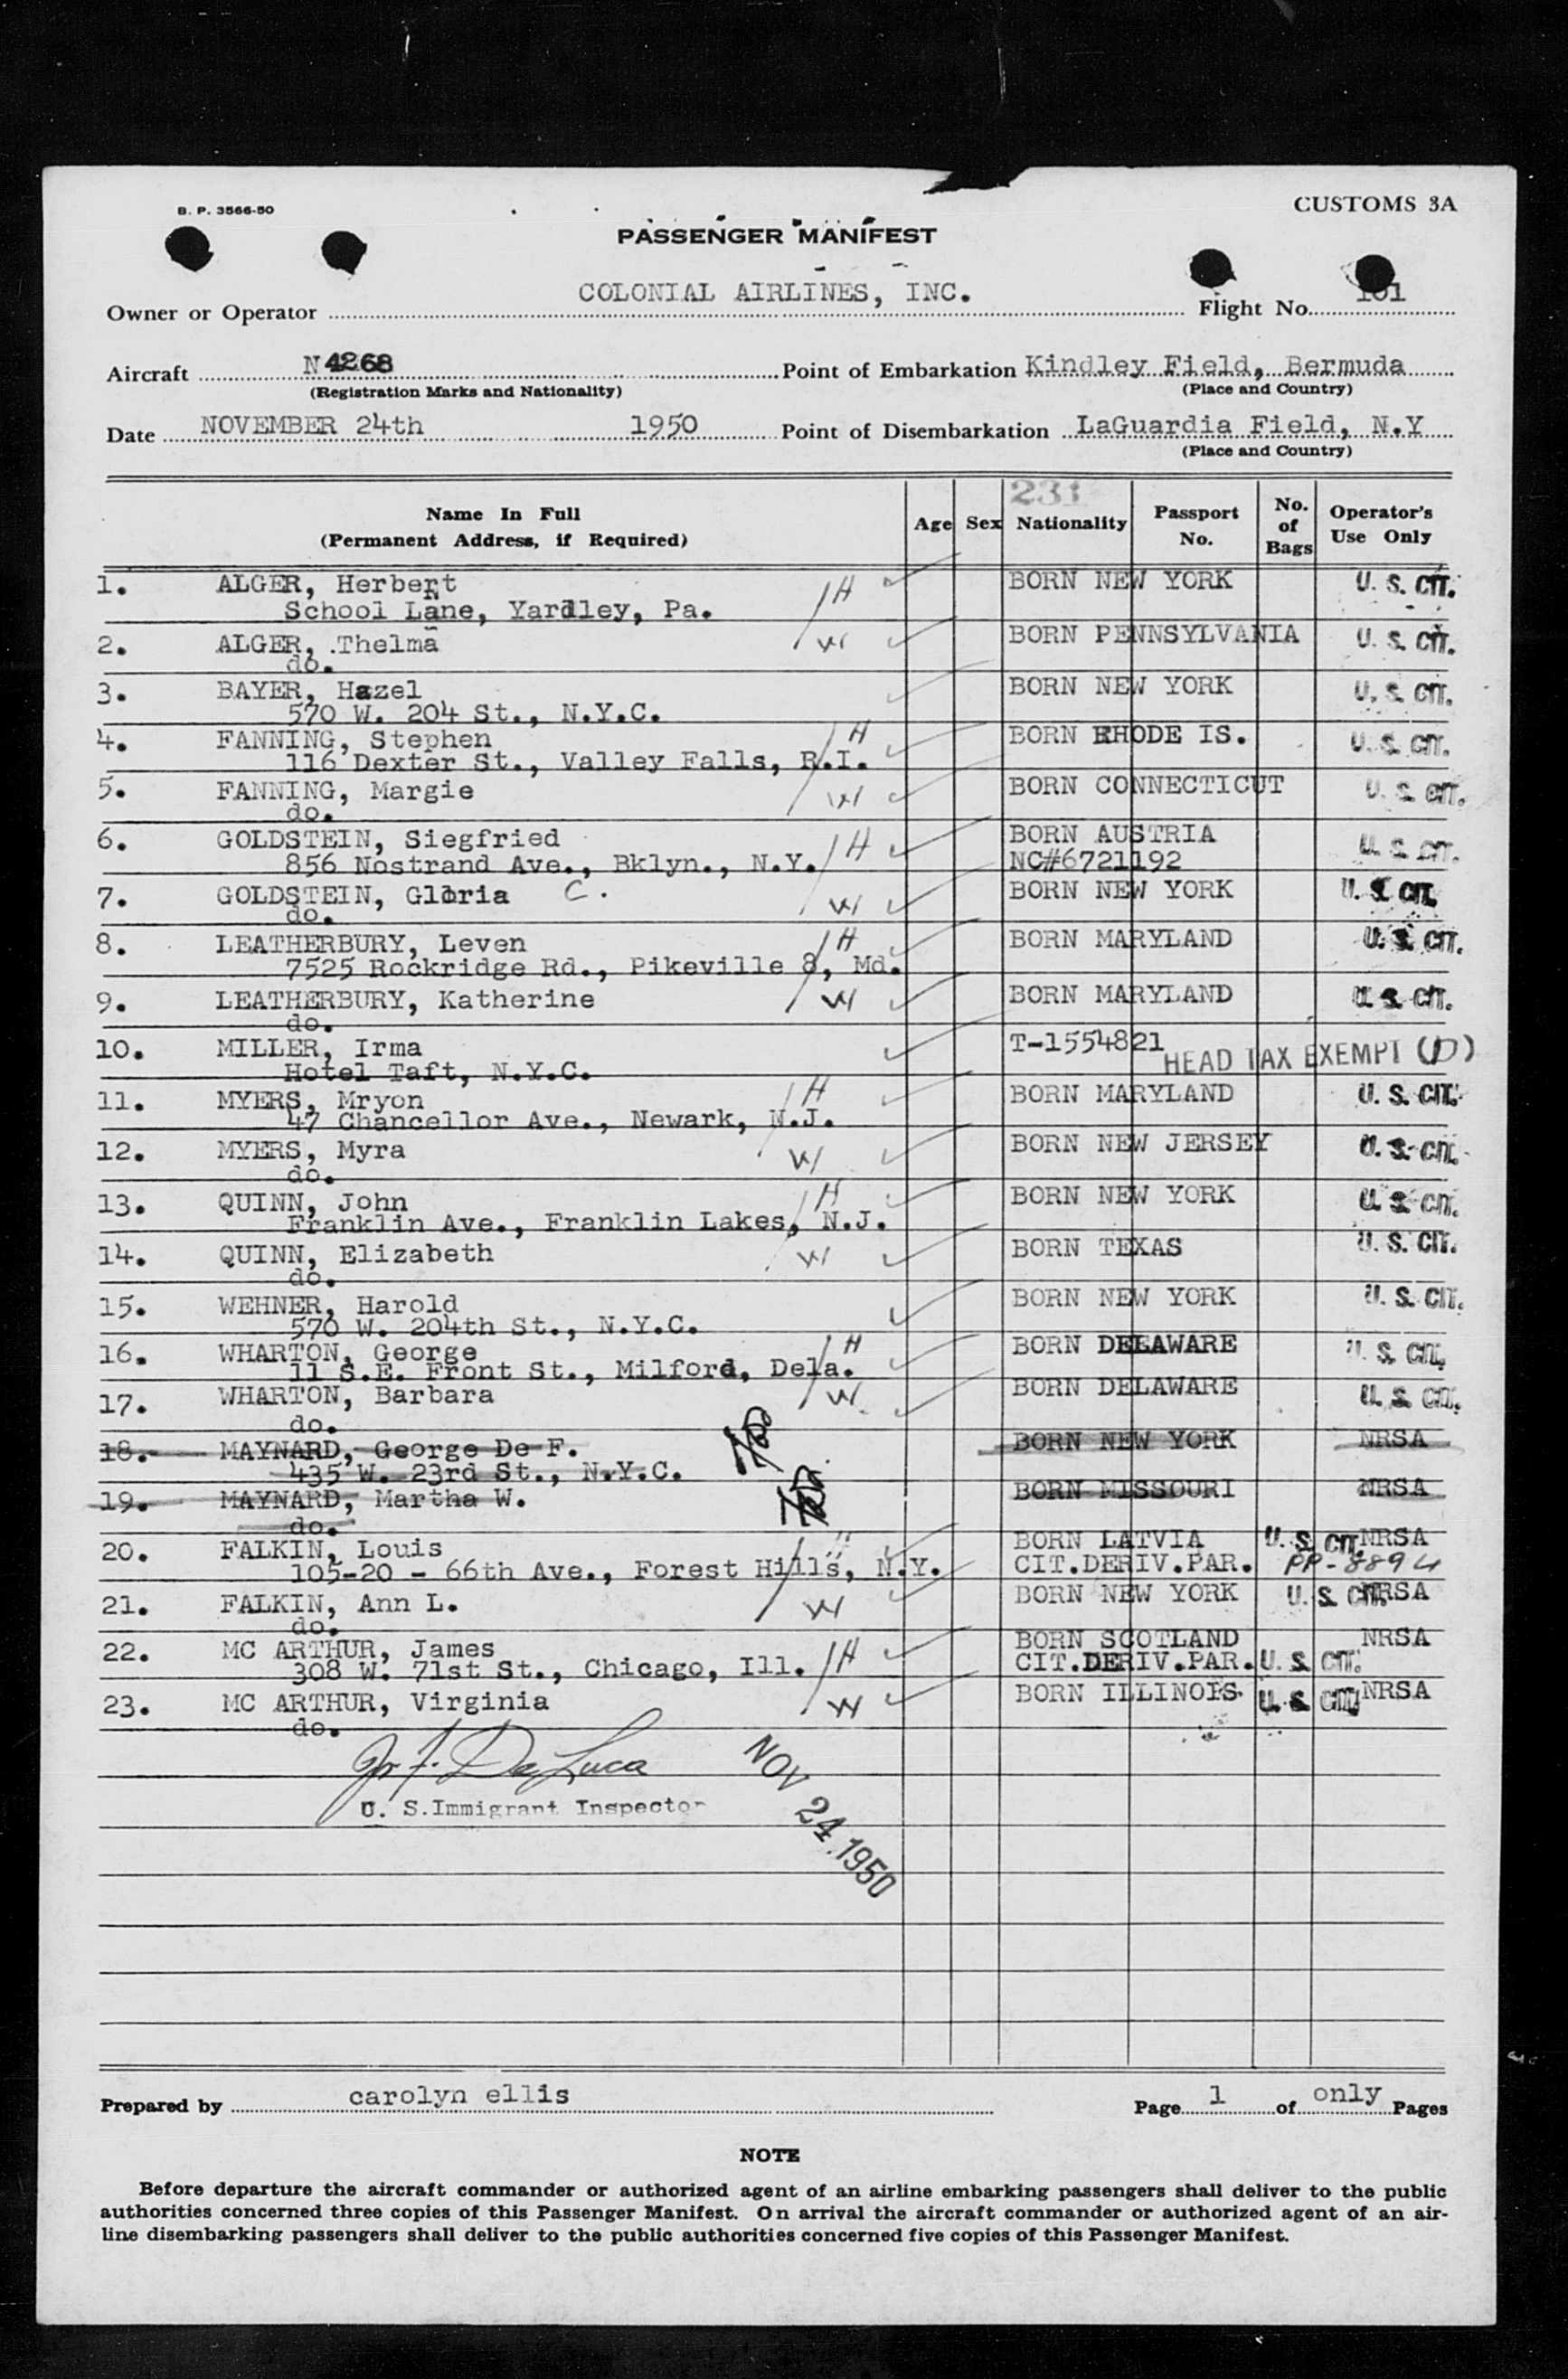 B. P. 3566-50
CUSTOMS 3A
PASSENGER MANIFEST
Owner or Operator COLONIAL AIRLINES, INC. Flight No. 101
Aircraft N 4268 Point of Embarkation Kindley Field, Bermuda
(Registration Marks and Nationality) (Place and Country)
Date NOVEMBER 24th 1950 Point of Disembarkation LaGuardia Field, N.Y
(Place and Country)
231
Name In Full (Permanent Address, if Required) Age Sex Nationality Passport No. No. of Bags Operator's Use Only
1. ALGER, Herbert H BORN NEW YORK U. S. CIT.
School Lane, Yardley, Pa.
2. ALGER, Thelma W BORN PENNSYLVANIA U. S. CIT.
do.
3. BAYER, Hazel BORN NEW YORK U. S. CIT.
570 W. 204 St., N.Y.C.
4. FANNING, Stephen H BORN RHODE IS. U. S. CIT.
116 Dexter St., Valley Falls, R.I.
5. FANNING, Margie W BORN CONNECTICUT U. S. CIT.
do.
6. GOLDSTEIN, Siegfried H BORN AUSTRIA U. S. CIT.
856 Nostrand Ave., Bklyn., N.Y. NC#6721192
7. GOLDSTEIN, Gloria C. W BORN NEW YORK U. S. CIT.
do.
8. LEATHERBURY, Leven H BORN MARYLAND U. S. CIT.
7525 Rockridge Rd., Pikeville 8, Md.
9. LEATHERBURY, Katherine W BORN MARYLAND U. S. CIT.
do.
10. MILLER, Irma T-1554821 HEAD TAX EXEMPT (D)
Hotel Taft, N.Y.C.
11. MYERS, Mryon H BORN MARYLAND U. S. CIT.
47 Chancellor Ave., Newark, N.J.
12. MYERS, Myra W BORN NEW JERSEY U. S. CIT.
do.
13. QUINN, John H BORN NEW YORK U. S. CIT.
Franklin Ave., Franklin Lakes, N.J.
14. QUINN, Elizabeth W BORN TEXAS U. S. CIT.
do.
15. WEHNER, Harold BORN NEW YORK U. S. CIT.
570 W. 204th St., N.Y.C.
16. WHARTON, George H BORN DELAWARE U. S. CIT.
11 S.E. Front St., Milford, Dela.
17. WHARTON, Barbara W BORN DELAWARE U. S. CIT.
do.
18. MAYNARD, George De F. BORN NEW YORK NRSA
435 W. 23rd St., N.Y.C.
19. MAYNARD, Martha W. BORN MISSOURI NRSA
do.
20. FALKIN, Louis H BORN LATVIA U. S. CIT. NRSA
105-20 - 66th Ave., Forest Hills, N.Y. CIT.DERIV.PAR. PP-8894
21. FALKIN, Ann L. W BORN NEW YORK U. S. CIT. NRSA
do.
22. MC ARTHUR, James H BORN SCOTLAND NRSA
308 W. 71st St., Chicago, Ill. CIT.DERIV.PAR. U. S. CIT.
23. MC ARTHUR, Virginia W BORN ILLINOIS U. S. CIT. NRSA
do.
De Luca
U. S. Immigrant Inspector
NOV 24 1950
Prepared by carolyn ellis Page 1 of only Pages
NOTE
Before departure the aircraft commander or authorized agent of an airline embarking passengers shall deliver to the public
authorities concerned three copies of this Passenger Manifest. On arrival the aircraft commander or authorized agent of an air-
line disembarking passengers shall deliver to the public authorities concerned five copies of this Passenger Manifest.